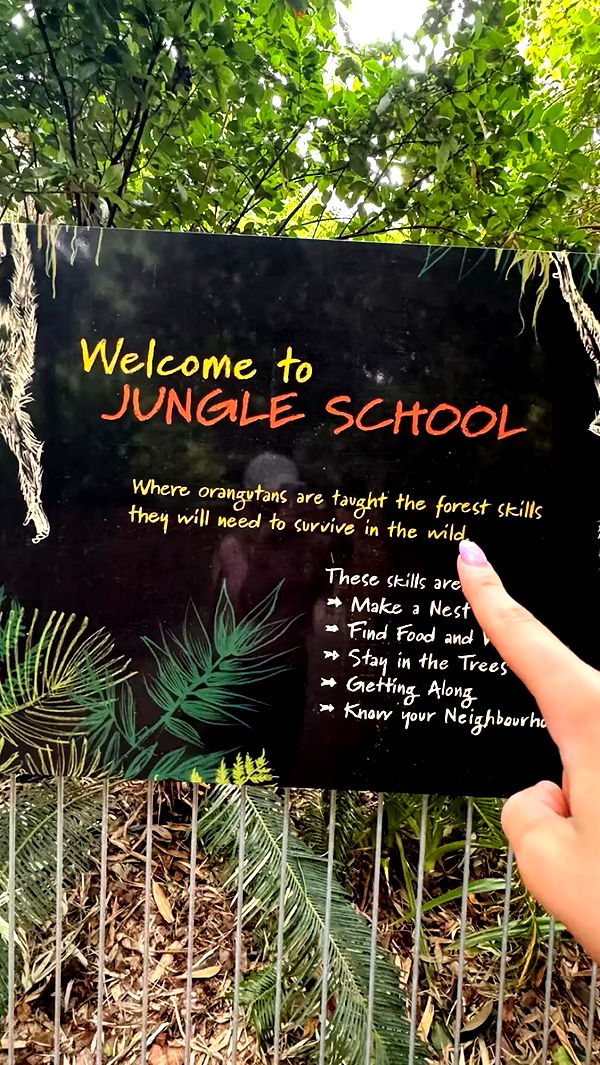 Welcome to
JUNGLE SCHOOL
Where orangutans are taught the forest skills
they will need to survive in the wild
These skills are
➳ Make a Nest
➳ Find Food and
➳ Stay in the Trees
➳ Getting Along
➳ Know your